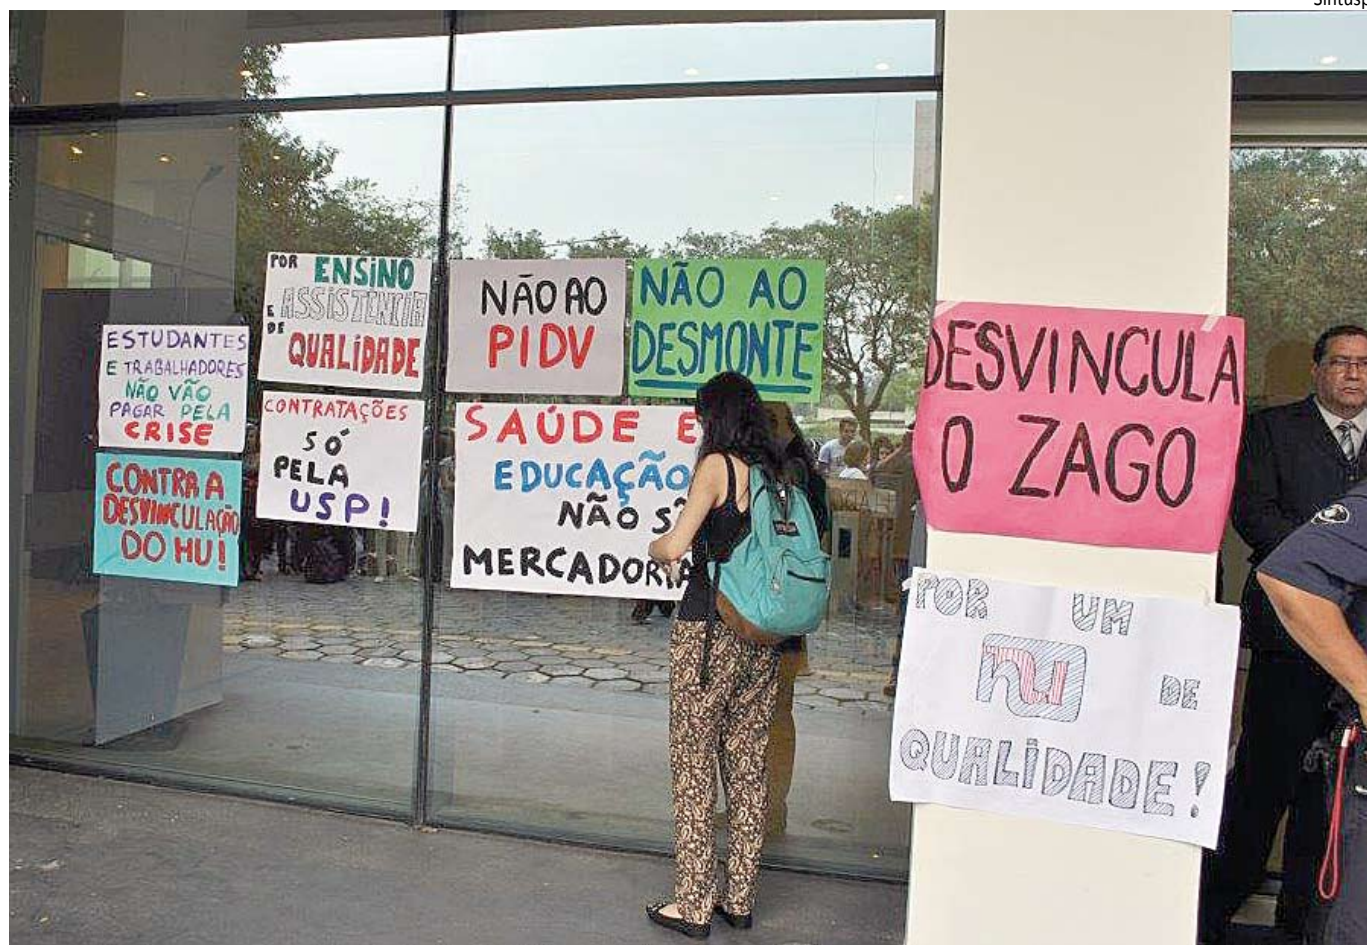 ESTUDANTES
E TRABALHADORES
NÃO VÃO
PAGAR PELA
CRISE
CONTRA A
DESVINCULAÇÃO
DO HU!
POR ENSINO
E ASSISTENCIA
DE QUALIDADE
CONTRATAÇÕES
SÓ
PELA
USP!
NÃO AO
PIDV
NÃO AO
DESMONTE
SAÚDE E
EDUCAÇÃO
NÃO
MERCADORIA
DESVINCULA
O ZAGO
POR UM
HU DE
QUALIDADE!